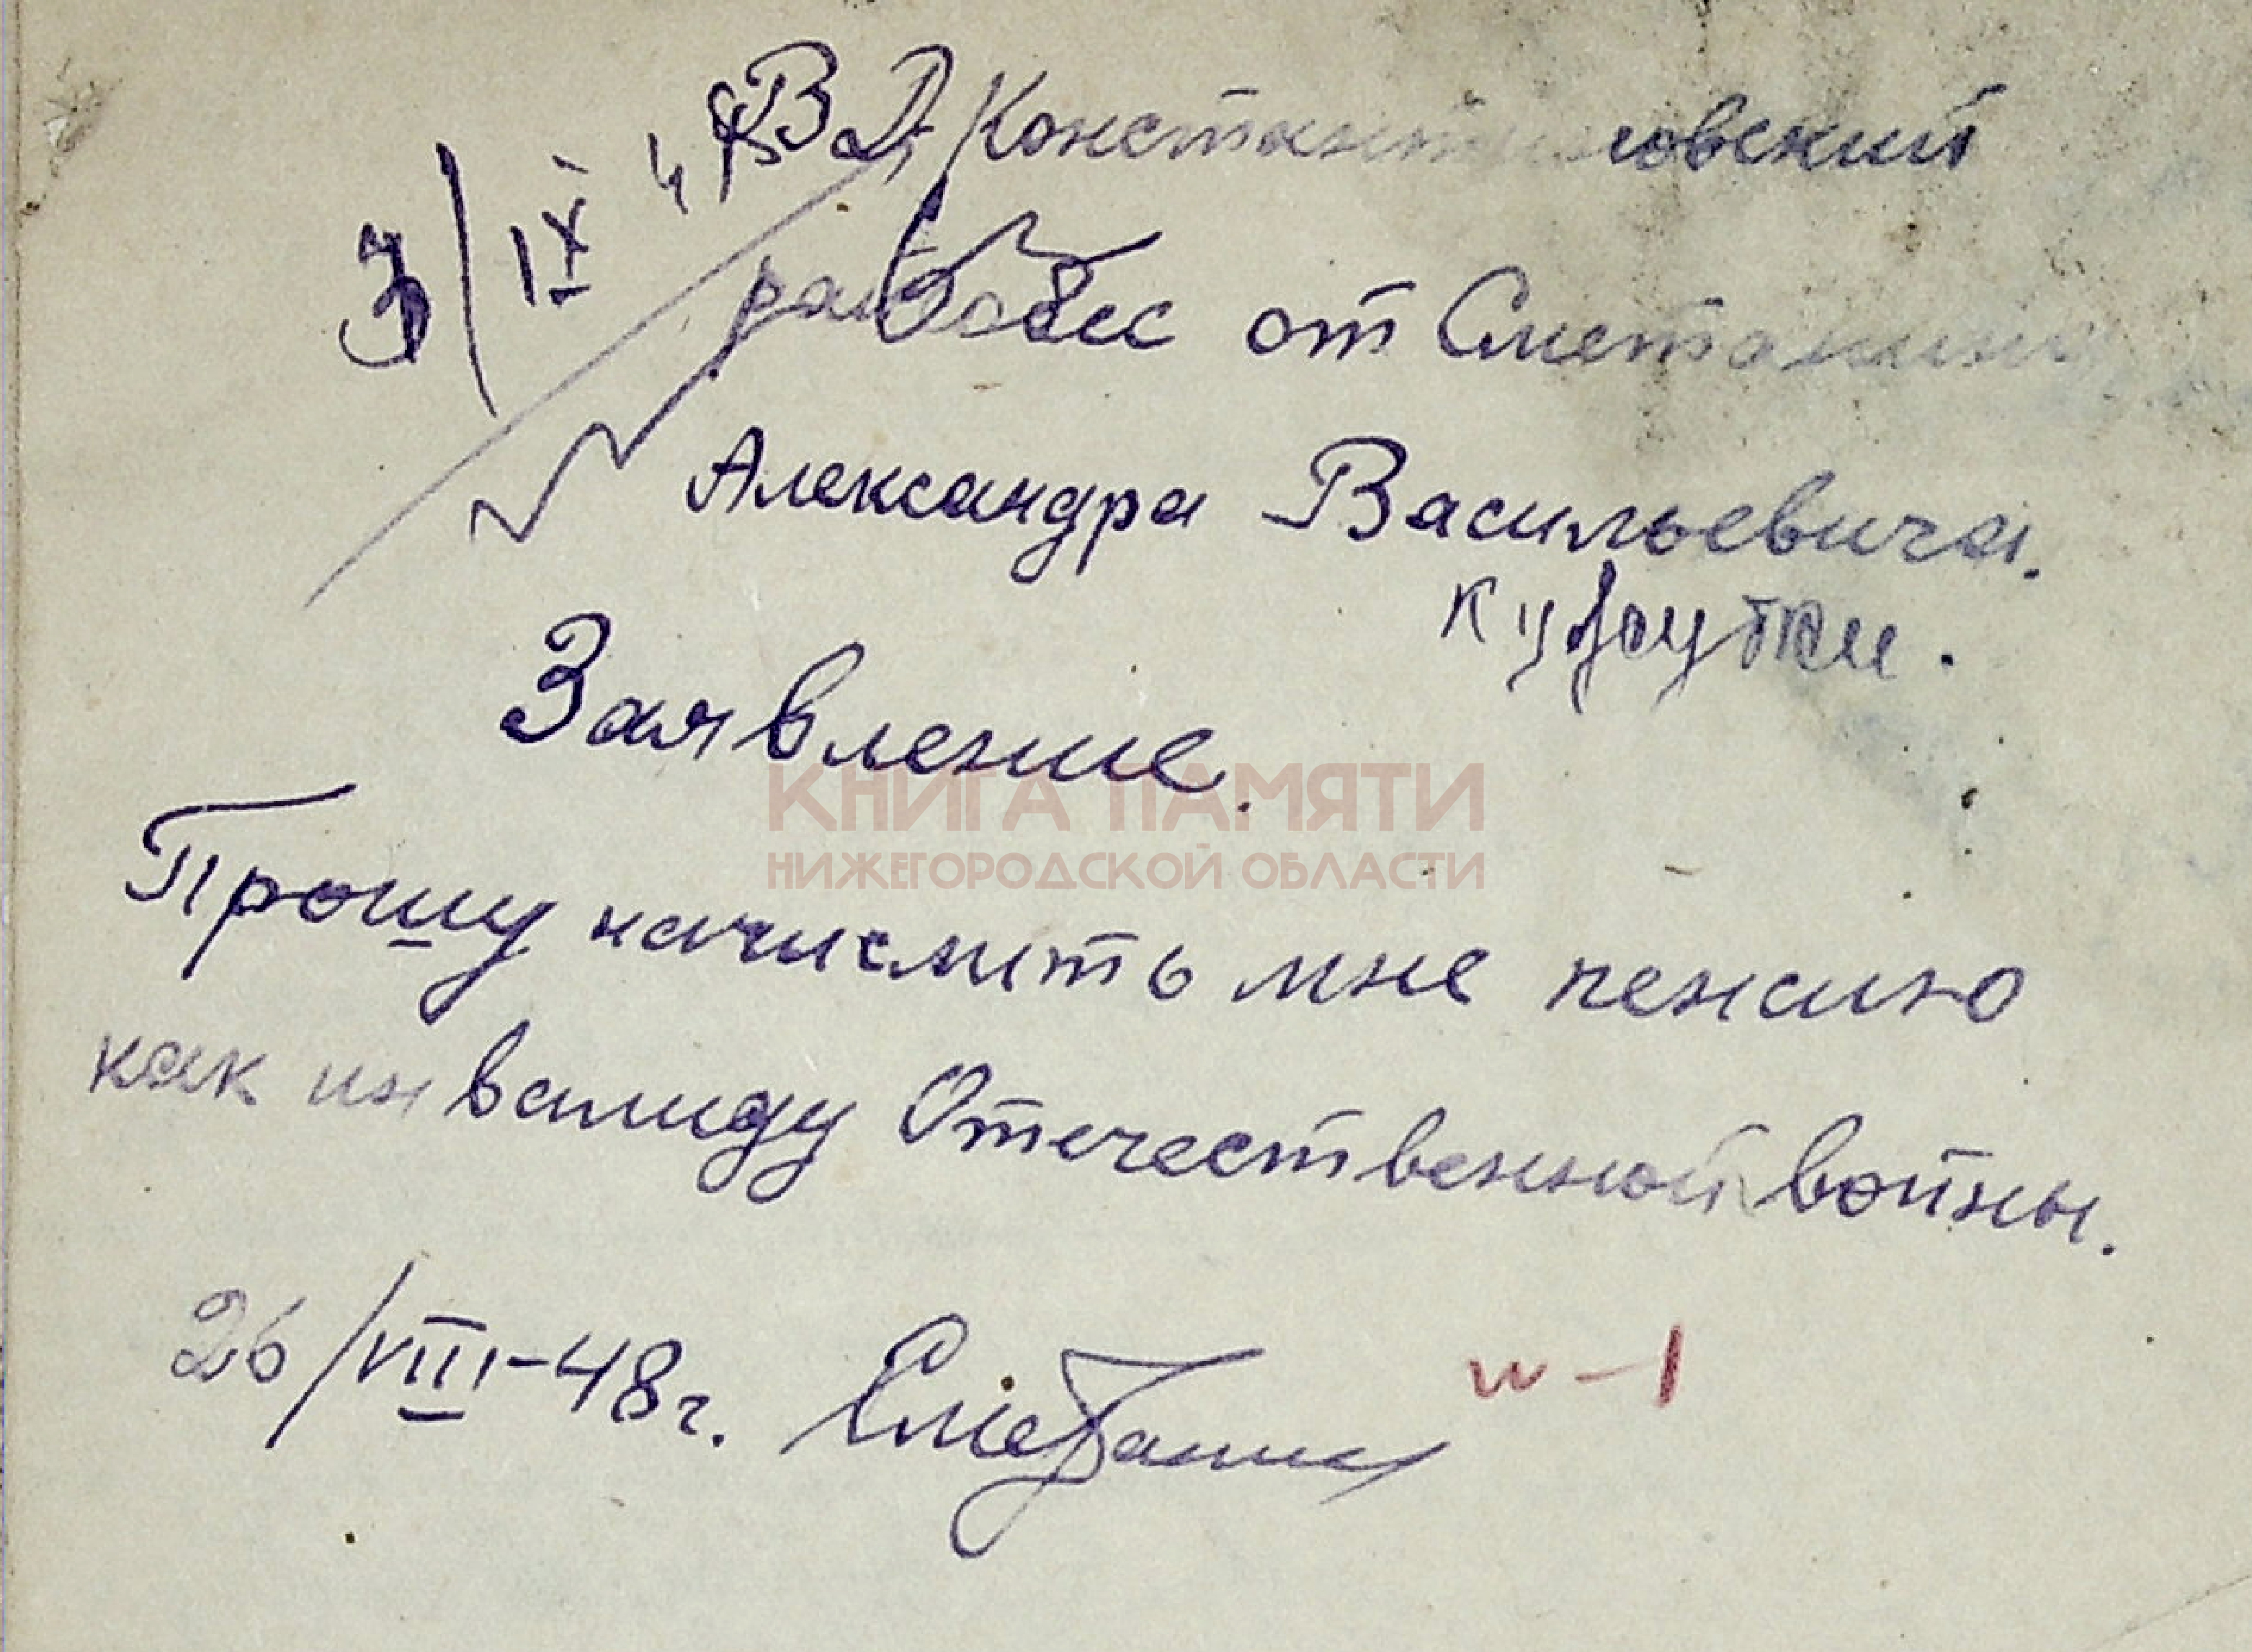 В Д. Константиновский
3/IX 48
райсобес от Сметанина
Александра Васильевича.
Заявление.
КНИГА ПАМЯТИ
НИЖЕГОРОДСКОЙ ОБЛАСТИ
Прошу начислить мне пенсию
как инвалиду Отечественной войны.
26/VIII-48г. Сметанин